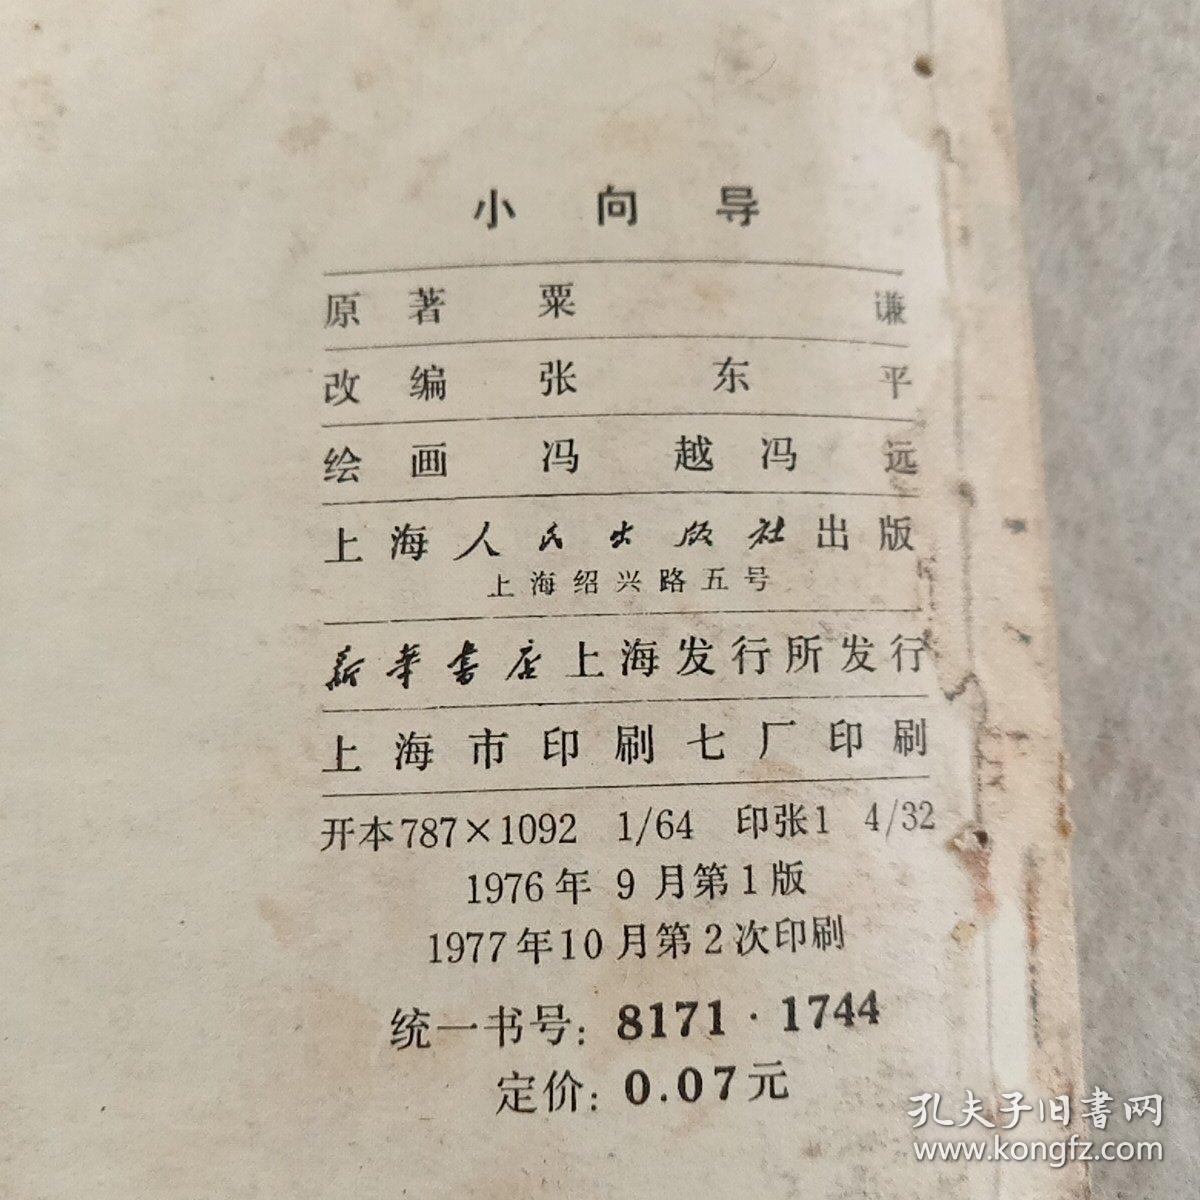 小向导
原著 粟谦
改编 张东平
绘画 冯越 冯远
上海人民出版社出版
上海绍兴路五号
新华书店上海发行所发行
上海市印刷七厂印刷
开本787×1092 1/64 印张1 4/32
1976年9月第1版
1977年10月第2次印刷
统一书号：8171·1744
定价：0.07元
孔夫子旧书网
www.kongfz.com